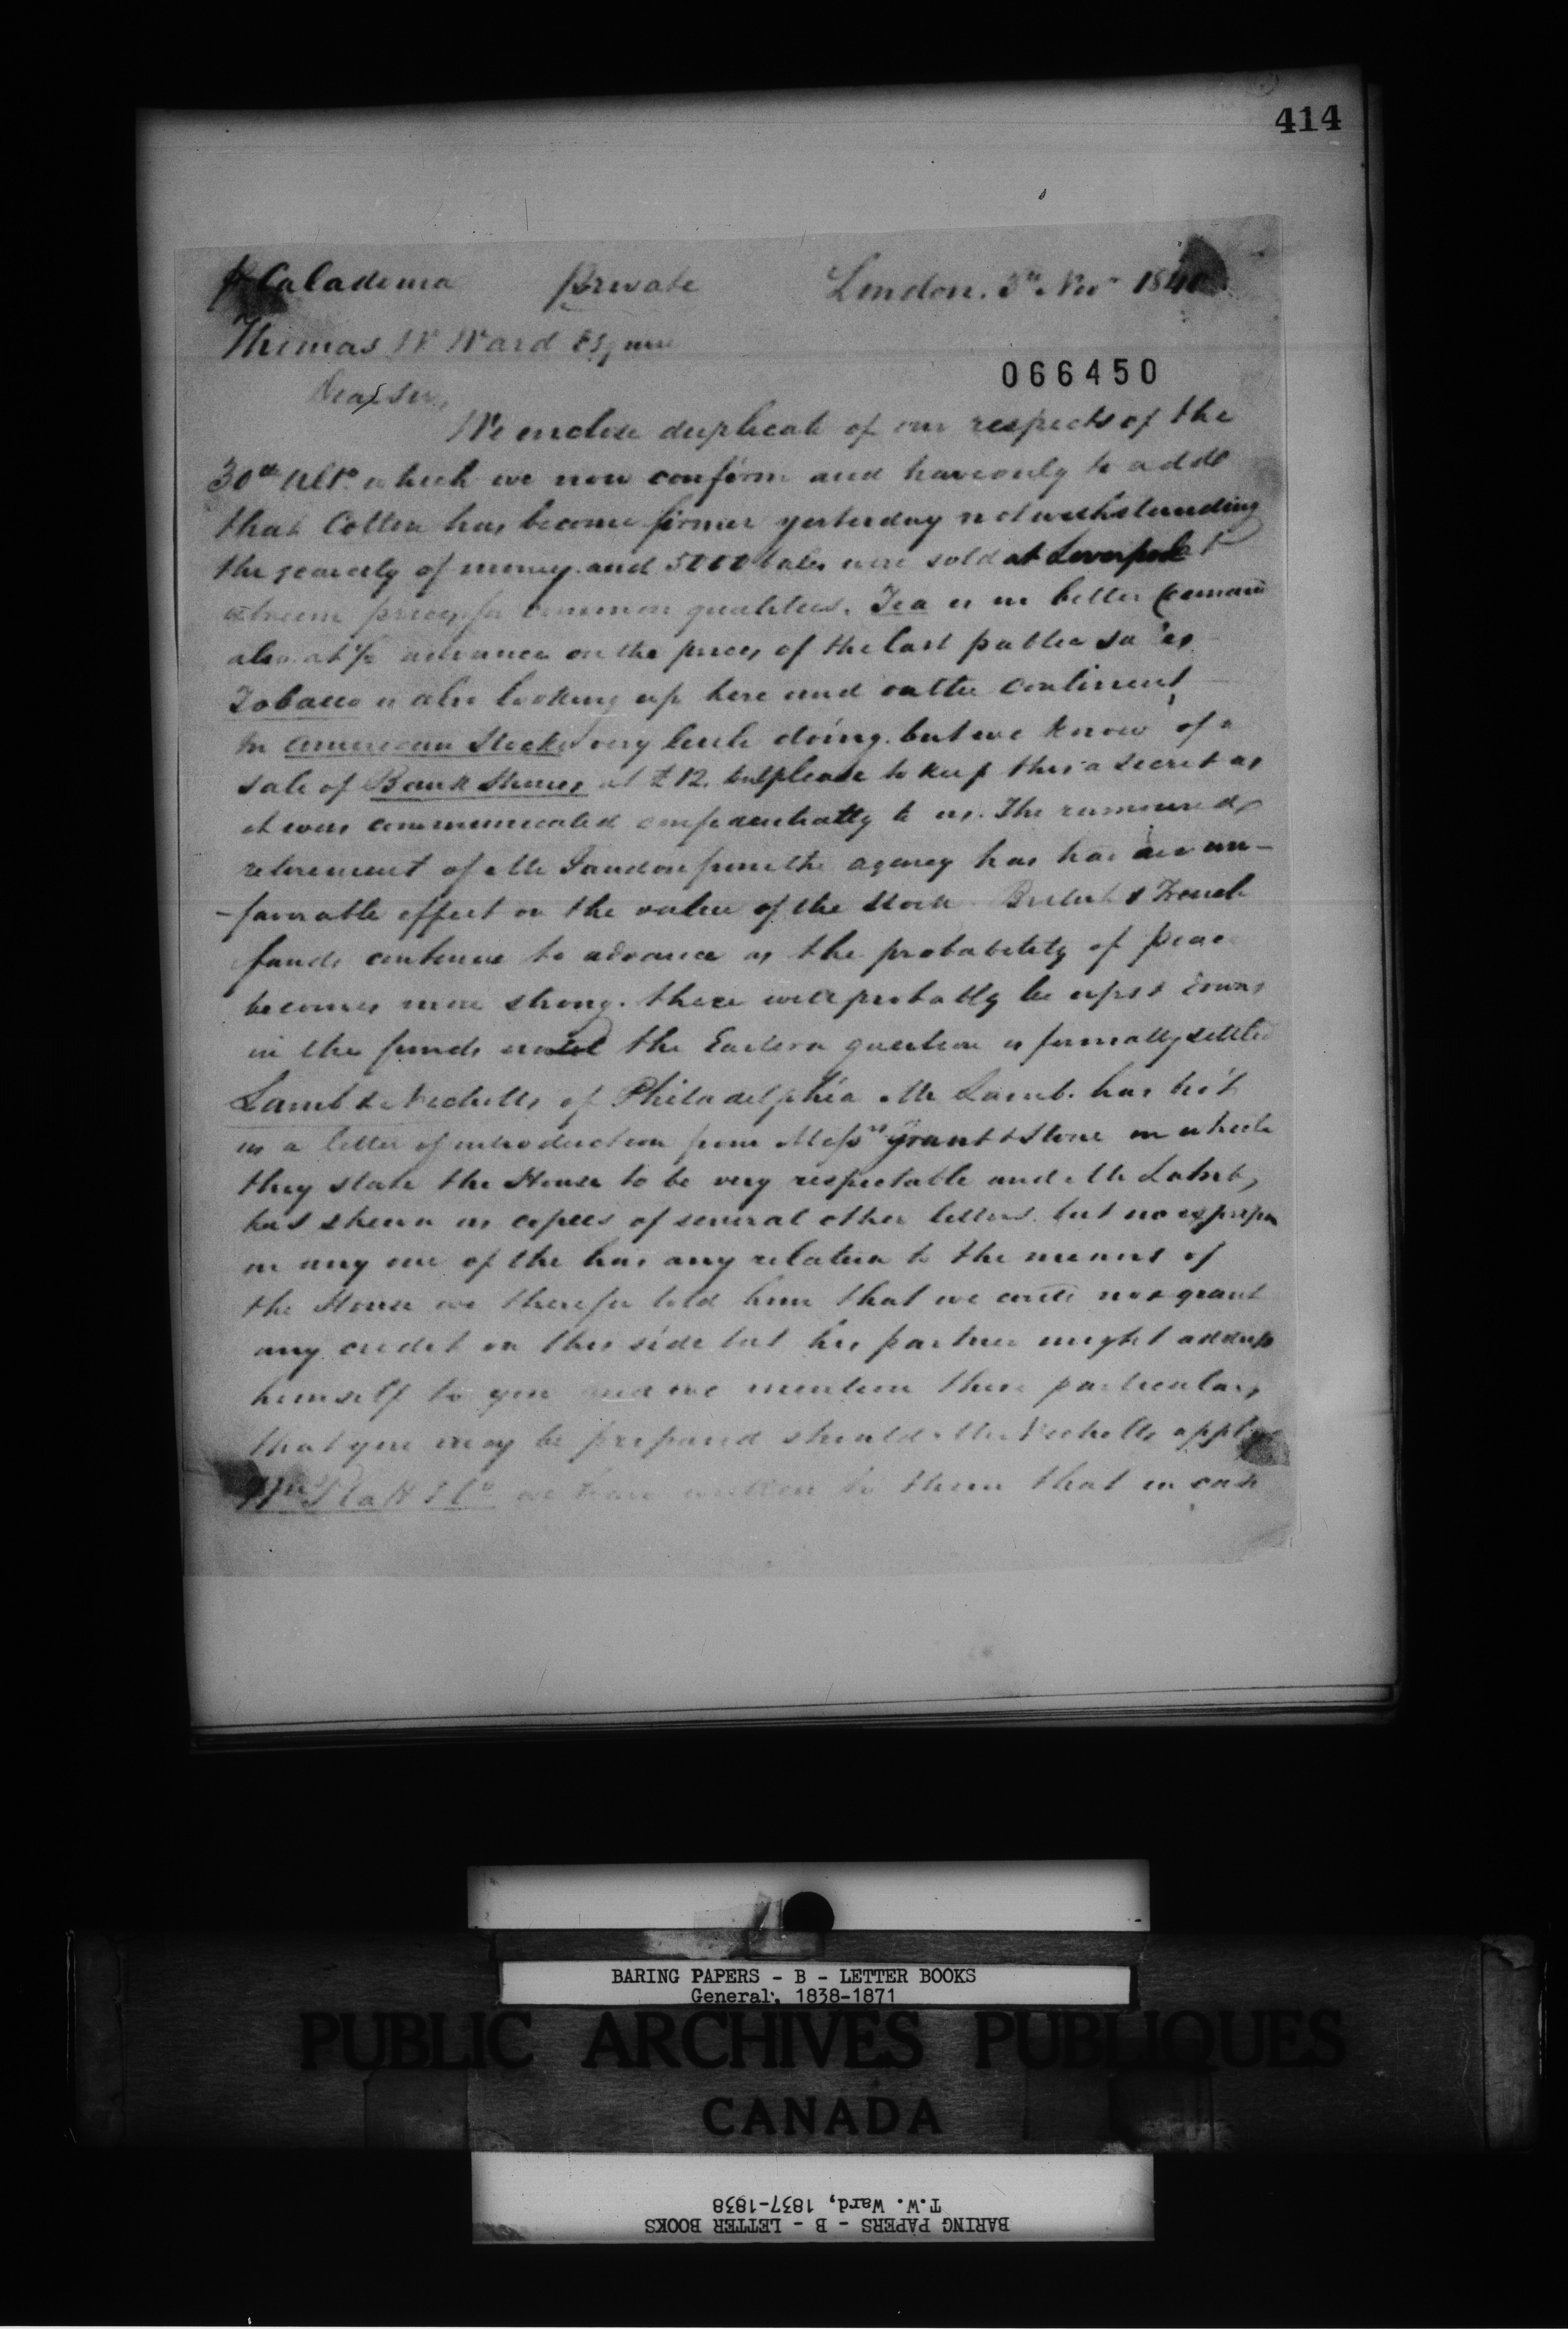 414
p Caladonia Private London. 3d Novr 1840
Thomas W Ward Esquire
066450
Dear Sir,
We enclose duplicate of our respects of the
30th Ulto. which we now confirm and have only to add
that Cotton has become firmer yesterday notwithstanding
the scarcity of money. and 5000 bales were sold at Liverpool at
extreme prices for common qualities. Tea is in better demand
also at advance on the prices of the last public sales
Tobacco is also looking up here and on the continent
In American Stocks very little doing. but we know of a
sale of Bank Shares at £12. but please to keep this a secret as
it was communicated confidentially to us. The rumoured
retirement of Mr Jaudon from the agency has had an un-
-favorable effect on the value of the Stock British & French
funds continue to advance as the probability of peace
becomes more strong. there will probably be ups & downs
in the funds until the Eastern question is formally settled
Lamb & Nicholls of Philadelphia Mr Lamb. has bro't
us a letter of introduction from Messrs Grant & Stone in which
they state the House to be very respectable and Mr Lamb,
has shewn us copies of several other letters. but no expression
in any one of the has any relation to the means of
the House we therefor told him that we could not grant
any credit on this side but his partner might address
himself to you and we mention these particulars,
that you may be prepared should Mr Nicholls apply
Wm Platt & Co we have written to them that in case
BARING PAPERS - B - LETTER BOOKS
General, 1838-1871
PUBLIC ARCHIVES PUBLIQUES
CANADA
T.W. Ward, 1837-1838
BARING PAPERS - B - LETTER BOOKS